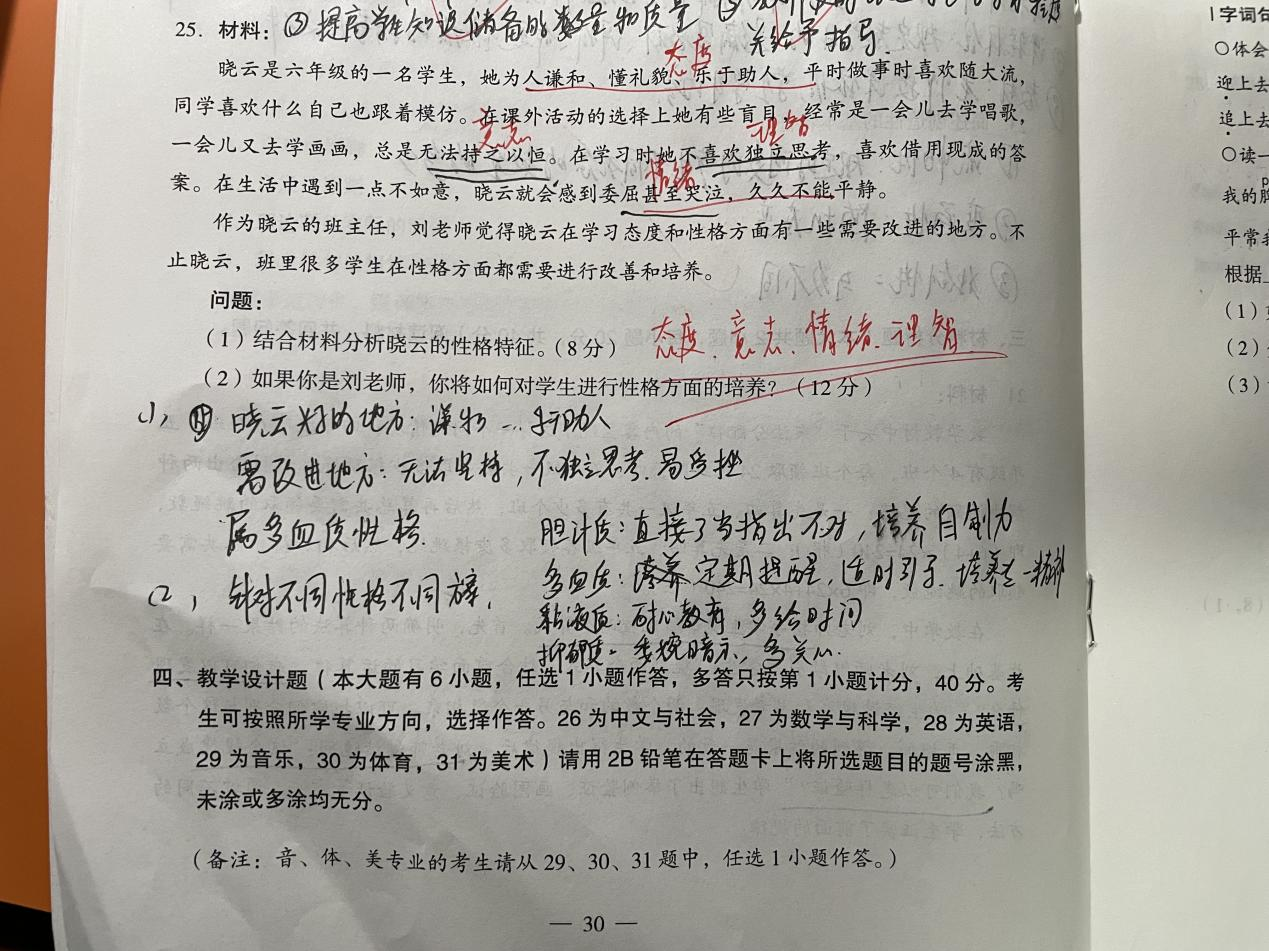 25. 材料：③提高学生知识储备的数量和质量
并给予指导.
态度
晓云是六年级的一名学生，她为人谦和、懂礼貌、乐于助人，平时做事时喜欢随大流，
同学喜欢什么自己也跟着模仿。在课外活动的选择上她有些盲目，经常是一会儿去学唱歌，
意志 理智
一会儿又去学画画，总是无法持之以恒。在学习时她不喜欢独立思考，喜欢借用现成的答
情绪
案。在生活中遇到一点不如意，晓云就会感到委屈甚至哭泣，久久不能平静。
作为晓云的班主任，刘老师觉得晓云在学习态度和性格方面有一些需要改进的地方。不
止晓云，班里很多学生在性格方面都需要进行改善和培养。
问题：
（1）结合材料分析晓云的性格特征。（8分） 态度、意志、情绪、理智
（2）如果你是刘老师，你将如何对学生进行性格方面的培养？（12分）
(1) 晓云好的地方：谦和…乐于助人
需改进地方：无法坚持，不独立思考.易受挫
属多血质性格.
胆汁质：直接了当指出不对，培养自制力
(2) 针对不同性格不同
多血质：定期提醒，适时引导.培养专一精神
粘液质：耐心教育，多给时间
抑郁质：委婉暗示，多关心.
四、教学设计题（本大题有6小题，任选1小题作答，多答只按第1小题计分，40分。考
生可按照所学专业方向，选择作答。26为中文与社会，27为数学与科学，28为英语，
29为音乐，30为体育，31为美术）请用2B铅笔在答题卡上将所选题目的题号涂黑，
未涂或多涂均无分。
（备注：音、体、美专业的考生请从29、30、31题中，任选1小题作答。）
— 30 —
字词句
○体会
迎上去
追上去
○读一
我的
平常
根据
（1）
（2）
（3）